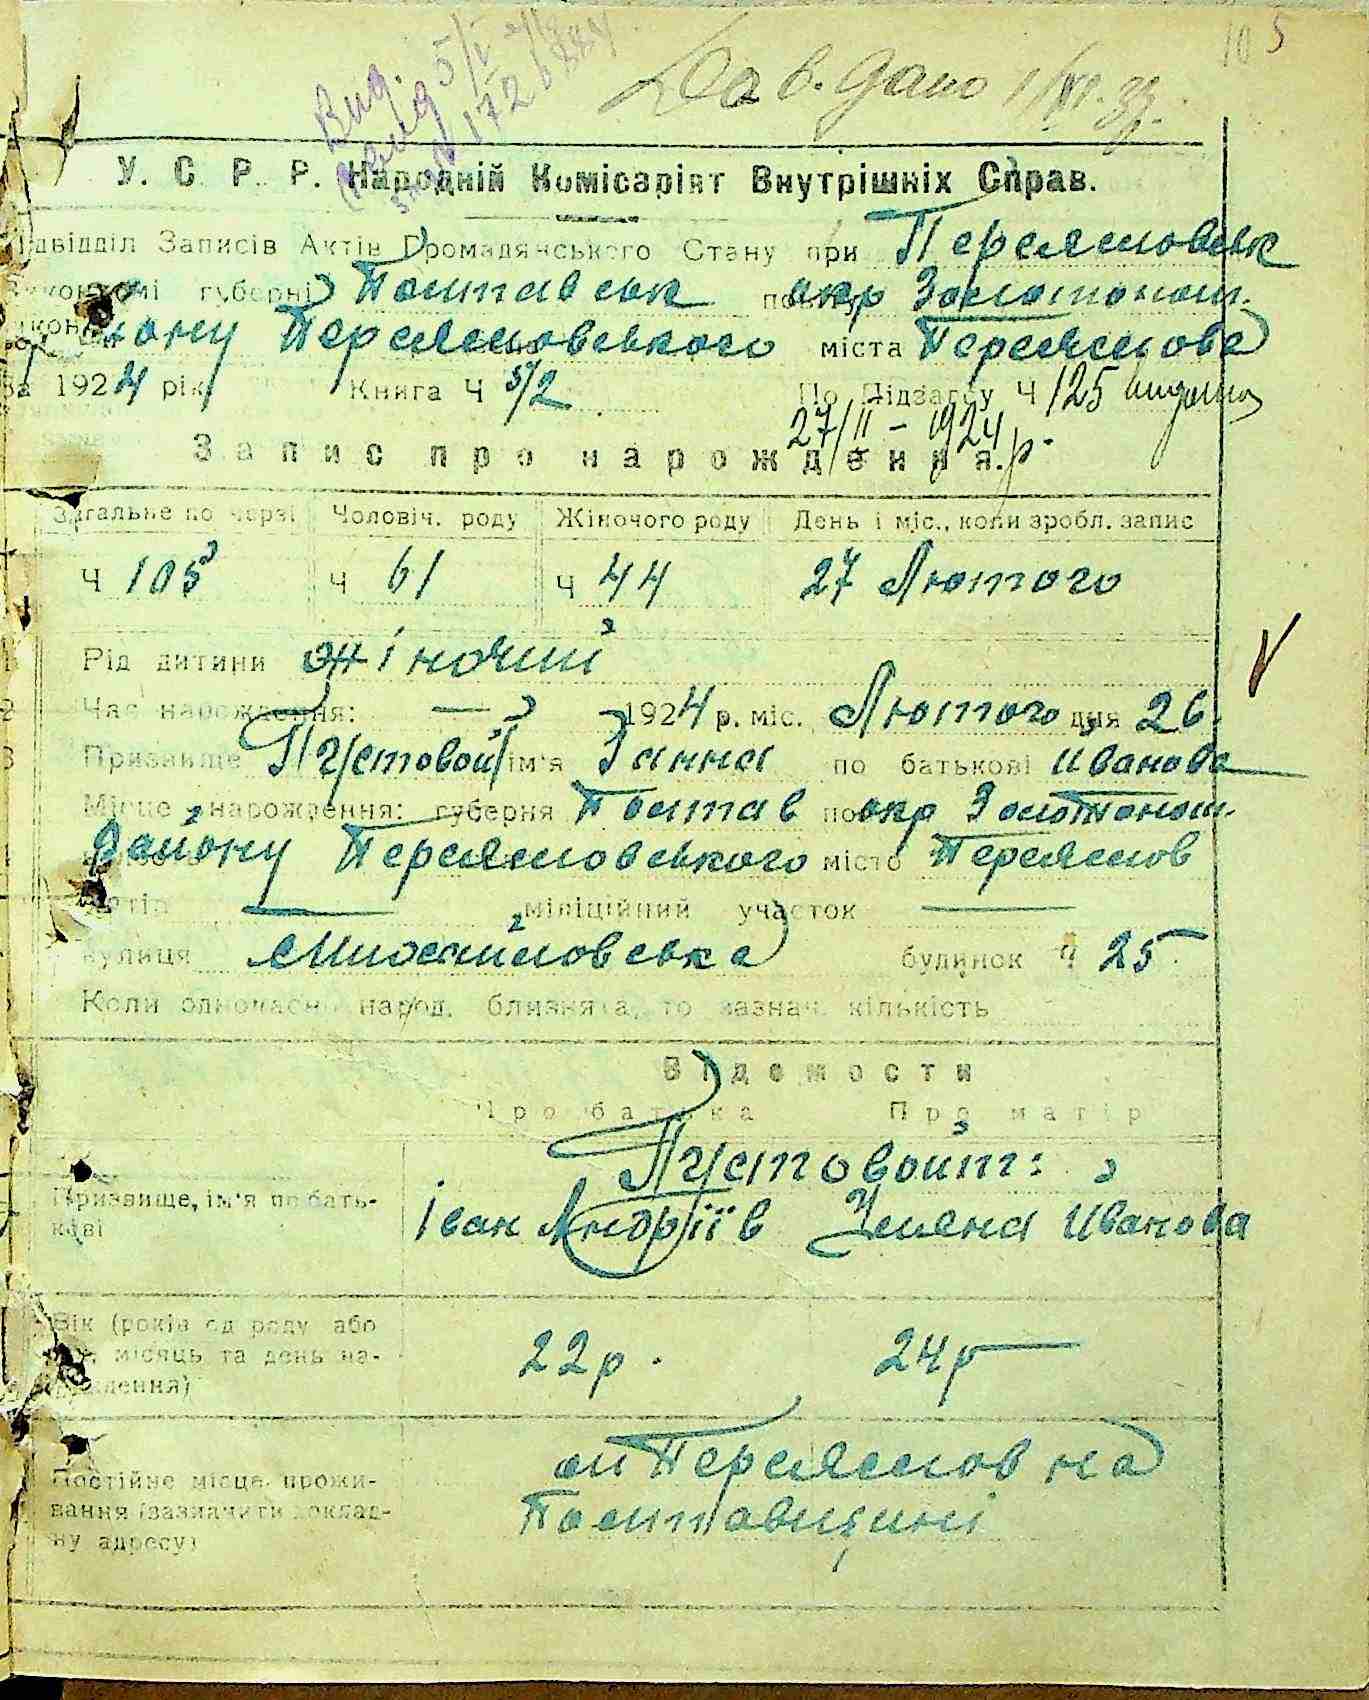 105
Дов. дано 1/VI.33.
Вид. 5/V
У. С. Р. Р. Народній Комісаріят Внутрішніх Справ.
Підвідділ Записів Актів Громадянського Стану при Переяславськ
Виконкомі губерні Полтавськ окр Золотонош.
району Переяславського міста Переяслова
За 1924 рік Книга Ч 5/2 По Підзагсу Ч 125 видана
27/II – 1924 р.
Запис про народження.
Загальне по черзі Чоловіч. роду Жіночого роду День і міс., коли зробл. запис
Ч 105 Ч 61 Ч 44 27 Лютого
1 Рід дитини жіночий
2 Час народження: — 1924 р. міс. Лютого дня 26
3 Призвище Пустовойт ім'я Ганна по батькові Иванова
Місце народження: губерня Полтав окр Золотонош.
Району Переясловського місто Переяслов
— міліційний участок —
вулиця Михайловська будинок Ч 25
Коли одночасно народ. близнята, то зазнач. кількість
Відомости
Про батька Про матір
Пустовойт:
Призвище, ім'я по бать-
кові Іван Андріїв Уляна Иванова
Вік (років од роду або
рік, місяць та день на-
родження) 22 р. 24 р
Постійне місце прожи-
вання (зазначити доклад-
ну адресу) м Переяслов на
Полтавщині